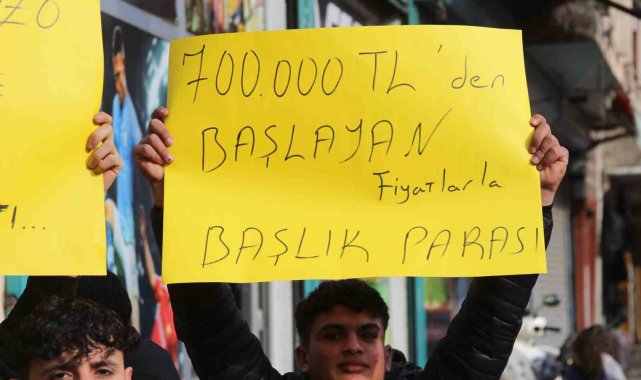 ZO
E
Fİ...
700.000 TL'den
BAŞLAYAN
Fiyatlarla
BAŞLIK PARASI